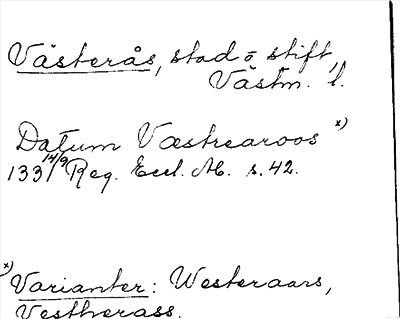 Västerås, stad o stift,
Västm. l.
Datum Væstrearoos x)
14/9 1331 Reg. Eccl. M. s. 42.
x) Varianter: Westeraars,
Vestherass.